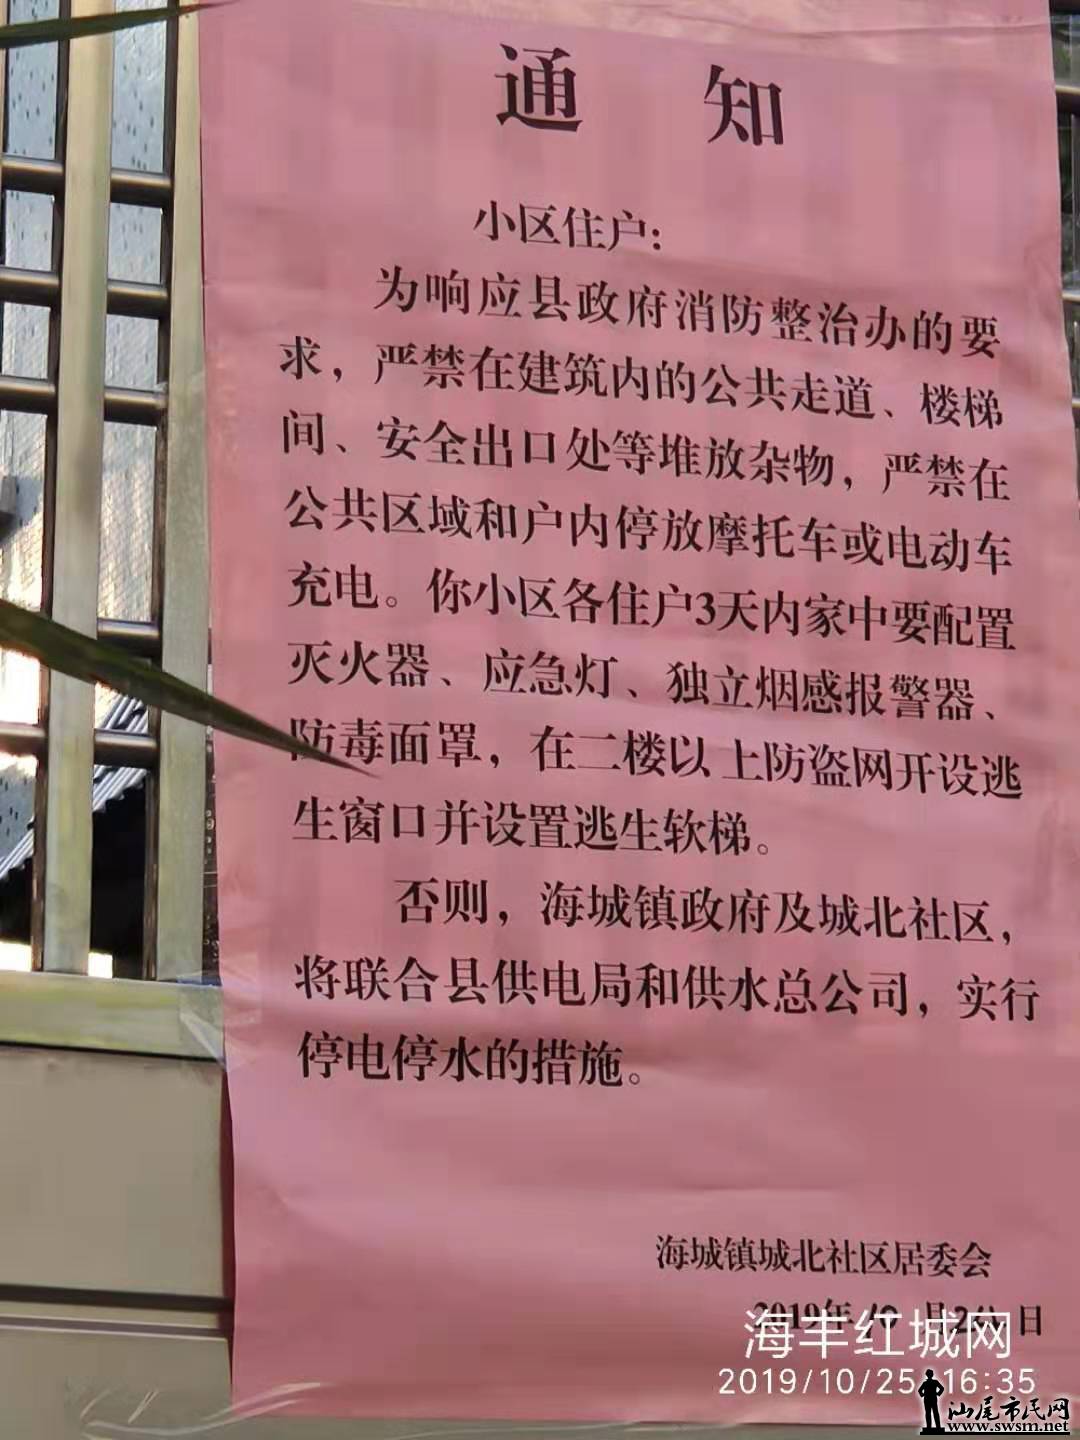 通 知
小区住户：
为响应县政府消防整治办的要
求，严禁在建筑内的公共走道、楼梯
间、安全出口处等堆放杂物，严禁在
公共区域和户内停放摩托车或电动车
充电。你小区各住户3天内家中要配置
灭火器、应急灯、独立烟感报警器、
防毒面罩，在二楼以上防盗网开设逃
生窗口并设置逃生软梯。
否则，海城镇政府及城北社区，
将联合县供电局和供水总公司，实行
停电停水的措施。
海城镇城北社区居委会
2019年10月 日
海丰红城网
2019/10/25 16:35
汕尾市民网
www.swsm.net